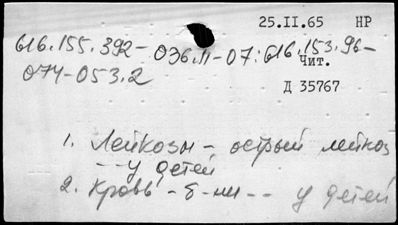 25.II.65 НР
616.155.392-036.11-07:616.153.96-
074-053.2
Чит.
Д 35767
1. Лейкозы - острый лейкоз
-- у детей
2. Кровь - б-ни -- у детей